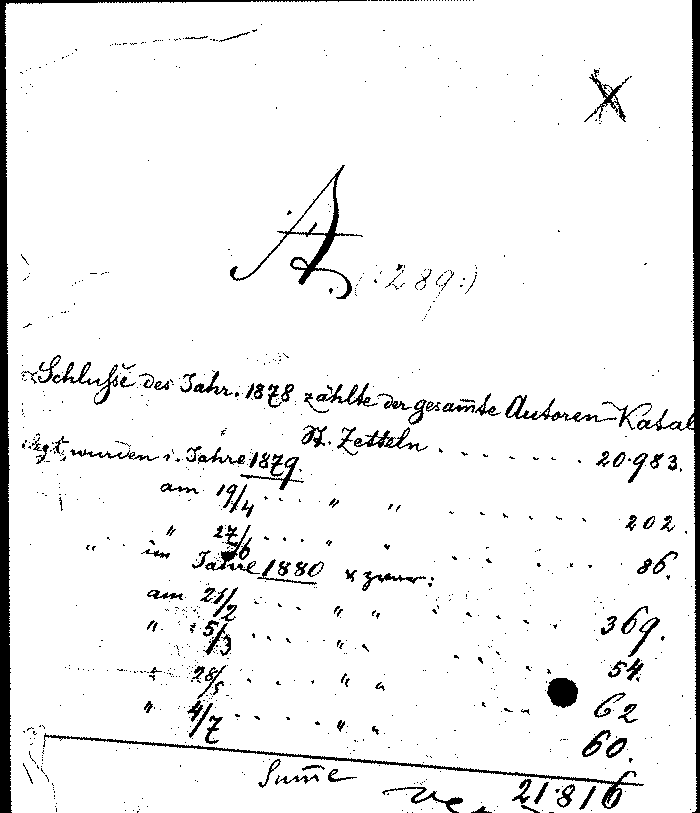 A.
(:289:)
Schluße des Jahr. 1878 zählte der gesam̅te Autoren-Katal
St. Zetteln . . . . . . . 20·983.
legt, wurden i. Jahre 1879.
am 19/4 . . . . " " . . . . . . 202.
" 27/6 . . . . " " . . . . . . 86.
" im Jahre 1880 u. zwar:
am 21/2 . . . . " " . . . . . . 369.
" 5/3 . . . . " " . . . . . 54.
" 28/5 . . . . " " . . . 62
" 4/7 . . . . " " 60.
Sum̅e 21·816